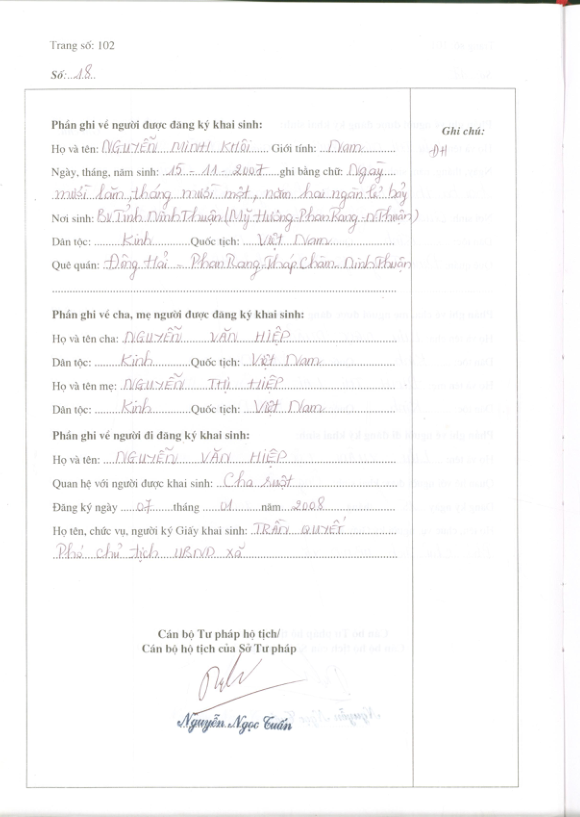 Trang số: 102
Số: 18
Phần ghi về người được đăng ký khai sinh:
Ghi chú:
Họ và tên: NGUYỄN MINH KHÔI Giới tính: Nam
ĐH
Ngày, tháng, năm sinh: 15 - 11 - 2007 ghi bằng chữ: Ngày
mười lăm, tháng mười một, năm hai ngàn lẻ bảy
Nơi sinh: BV.Tỉnh Ninh Thuận (Mỹ Hương-Phan Rang-NThuận)
Dân tộc: Kinh Quốc tịch: Việt Nam
Quê quán: Đông Hải - Phan Rang-Tháp Chàm, Ninh Thuận
Phần ghi về cha, mẹ người được đăng ký khai sinh:
Họ và tên cha: NGUYỄN VĂN HIỆP
Dân tộc: Kinh Quốc tịch: Việt Nam
Họ và tên mẹ: NGUYỄN THỊ HIỆP
Dân tộc: Kinh Quốc tịch: Việt Nam
Phần ghi về người đi đăng ký khai sinh:
Họ và tên: NGUYỄN VĂN HIỆP
Quan hệ với người được khai sinh: Cha ruột
Đăng ký ngày 07 tháng 01 năm 2008
Họ tên, chức vụ, người ký Giấy khai sinh: TRẦN QUYẾT
Phó chủ tịch UBND xã
Cán bộ Tư pháp hộ tịch/
Cán bộ hộ tịch của Sở Tư pháp
Nguyễn Ngọc Tuấn